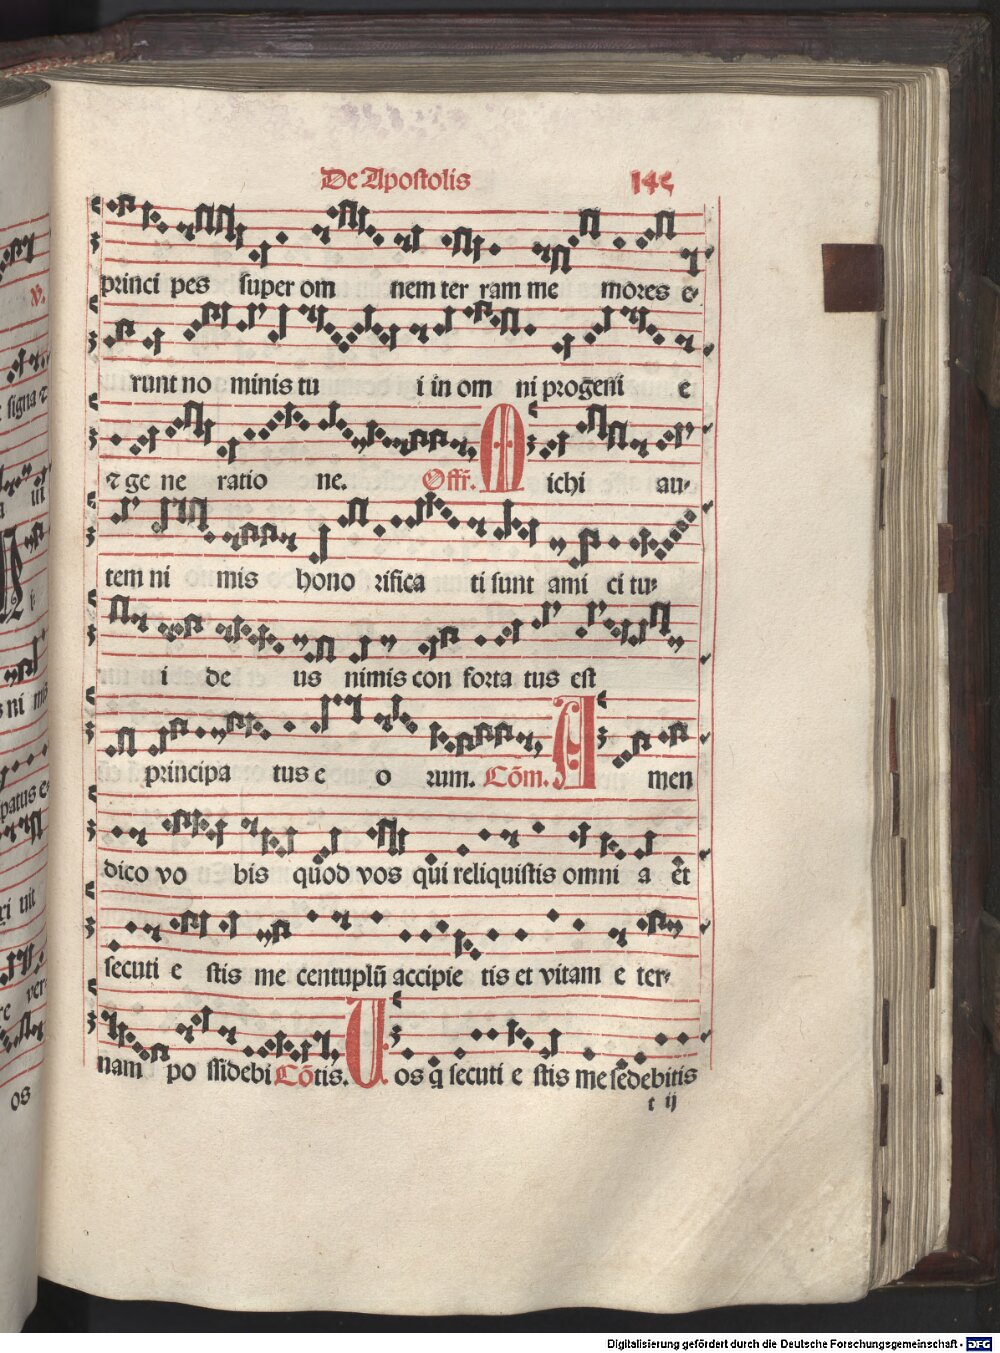 De Apostolis 145
princi pes super om nem ter ram me mores e-
runt no minis tu i in om ni progeni e
⁊ ge ne ratio ne. Offr̄. M ichi au-
tem ni mis hono rifica ti sunt ami ci tu-
i de us nimis con forta tus est
principa tus e o rum. Cōm. A men
dico vo bis quod vos qui reliquistis omni a et
secuti e stis me centuplū accipie tis et vitam e ter-
nam po ssidebi Cō tis. V os q̄ secuti e stis me sedebitis
t ij
signa ⁊
ni mis
patus e-
xi uit
re ver-
os
Digitalisierung gefördert durch die Deutsche Forschungsgemeinschaft - DFG